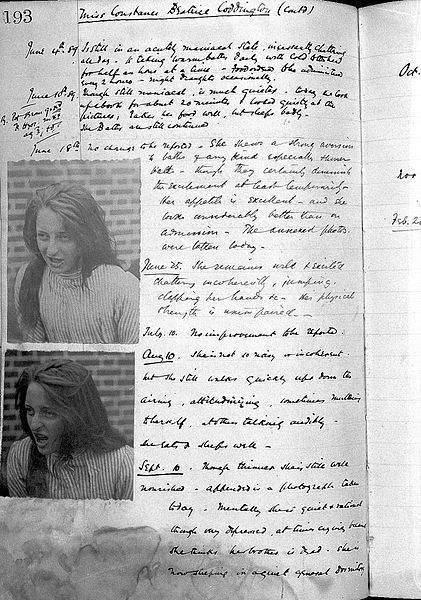 193
Miss Constance Beatrice Coddington (contd)
June 4th 89. Is still in an acutely maniacal state, incessantly chattering
all day. Is taking warm baths daily with cold to the head
for half an hour at a time - Food ordered to be administered
every 2 hours - night draughts occasionally.
June 10th 89. Though still maniacal, is much quieter - today she took
up a book for about 20 minutes & looked quietly at the
pictures; takes her food well, but sleeps badly -
The Baths are still continued
June 18th No change to be reported - She shews a strong aversion
to baths of any kind especially shower
baths - though they certainly diminish
the excitement at least temporarily -
Her appetite is excellent - and she
looks considerably better than on
admission - The annexed photos
were taken today -
June 25. She remains wild & excited
chattering incoherently, jumping,
clapping her hands &c - Her physical
strength is unimpaired -
July 10. No improvement to be reported.
Aug 10. She is not so noisy or incoherent.
but she still walks quickly up & down the
airing, attitudinizing, sometimes muttering
to herself, at others talking audibly -
She eats & sleeps well -
Sept. 10. Though thinner she is still well
nourished - appended is a photograph taken
today - Mentally she is quiet & rational
though very depressed, at times crying because
she thinks her brother is dead. She is
now sleeping in a quiet general dormitory
Oct.
Nov
Feb. 2